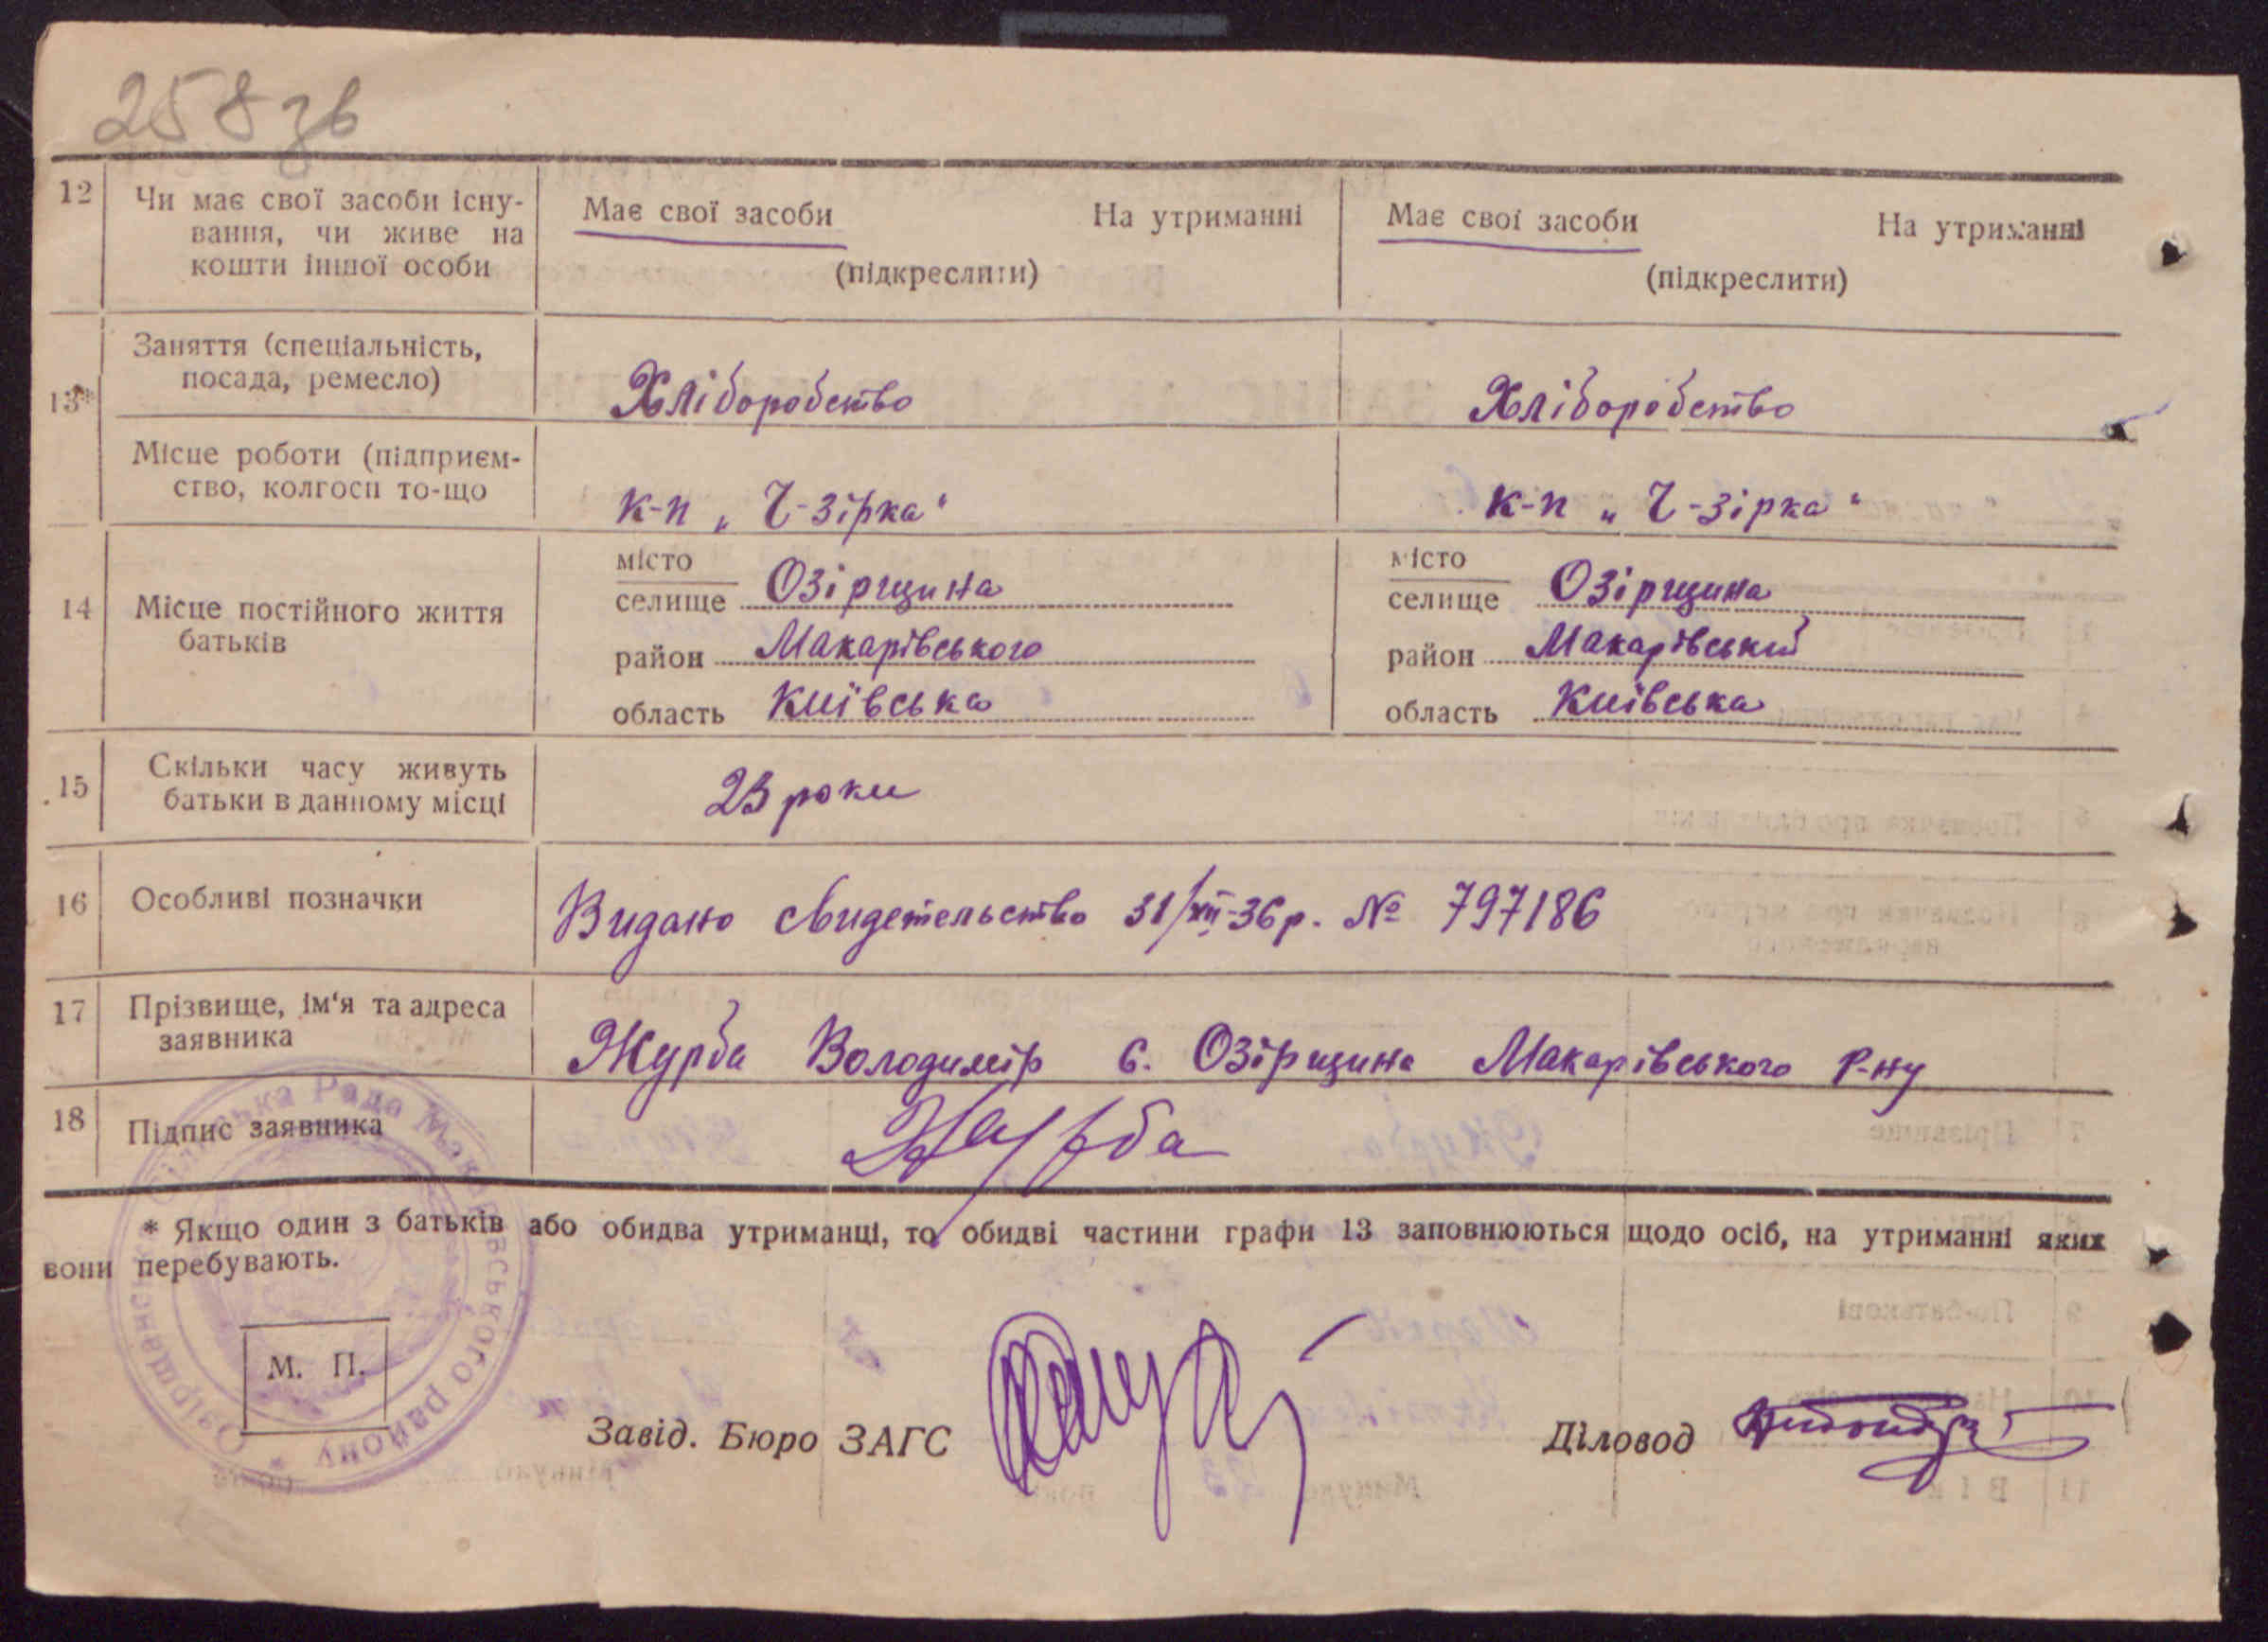 258 зв
12
Чи має свої засоби існу-
вання, чи живе на
кошти іншої особи
Має свої засоби На утриманні
(підкреслити)
Має свої засоби На утриманні
(підкреслити)
13*
Заняття (спеціальність,
посада, ремесло)
Хліборобство
Хліборобство
Місце роботи (підприєм-
ство, колгосп то-що
к-п „Ч-зірка“
к-п „Ч-зірка“
14
Місце постійного життя
батьків
місто
селище Озірщина
район Макарівського
область Київська
місто
селище Озірщина
район Макарівський
область Київська
15
Скільки часу живуть
батьки в данному місці
23 роки
16
Особливі позначки
Видано свидетельство 31/XII-36р. № 797186
17
Прізвище, ім‘я та адреса
заявника
Журба Володимір с. Озірщина Макарівського р-ну
18
Підпис заявника
Журба
* Якщо один з батьків або обидва утриманці, то обидві частини графи 13 заповнюються щодо осіб, на утриманні яких
вони перебувають.
Озірщанська Сільська Рада Макарівського району *
М. П.
Завід. Бюро ЗАГС
Діловод